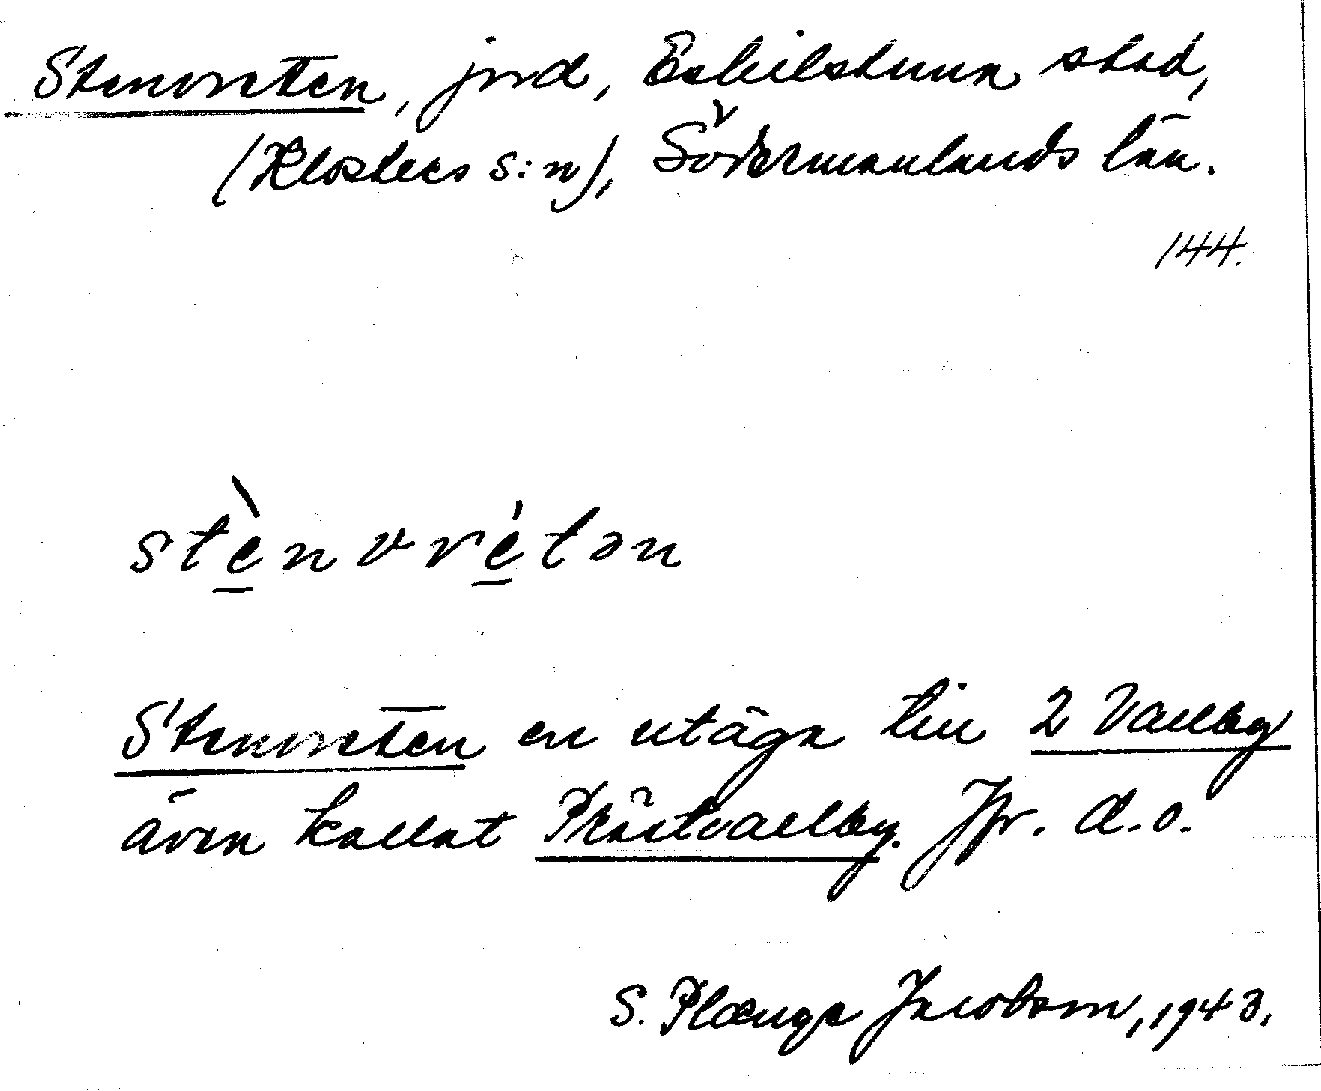 Stenvreten, jord, Eskilstuna stad,
(Klosters s:n), Södermanlands län.
144.
stè̲nvré̲tən
Stenvreten en utäga till 2 Vallby
även kallat Prästvallby. Jfr. d.o.
S. Plœnge Jacobson, 1943.